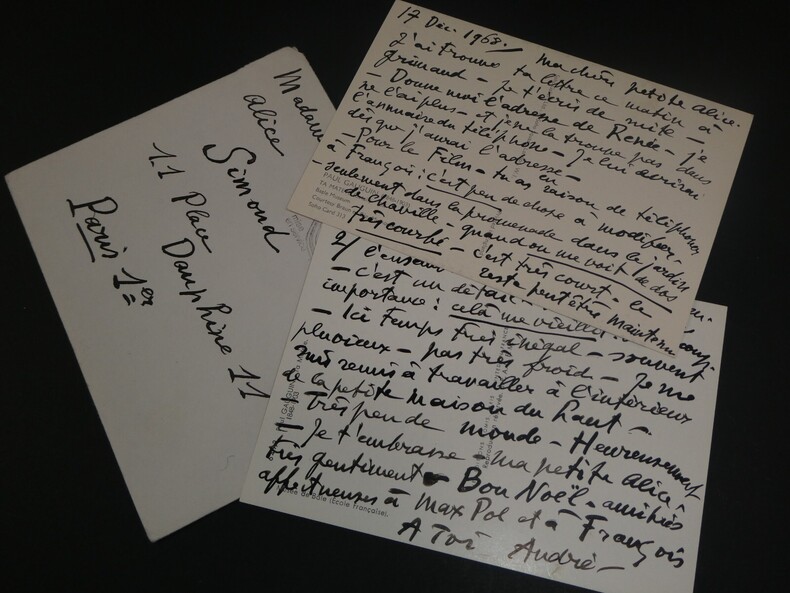 Madame
Alice
Simond
11 Place
Dauphine 11
Paris 1er
17 Déc. 1968./ Ma chère petite Alice.
J'ai trouvé ta lettre ce matin à
Grimaud - je t'écris de suite -
- Donne moi l'adresse de Renée - je
ne l'ai plus - et je ne la trouve pas dans
l'annuaire du téléphone - Je lui écrirai
dès que j'aurai l'adresse -
- Pour le Film - tu as eu raison de téléphoner
à François : c'est peu de chose à modifier -
- seulement dans la promenade dans le jardin
de chaville - quand on me voit de dos
très courbé - c'est très court - le
reste peut être maintenu
PAUL GAUGUIN
2/ l'ensemble
- c'est un détail
importance : celà me vieillit
- Ici temps très inégal - souvent
pluvieux - pas très froid - Je me
suis remis à travailler à l'intérieur
de la petite maison du haut -
Très peu de monde - Heureusement
Je t'embrasse - ma petite Alice
très gentiment - Bon Noël - amitiés
affectueuses à Max Pol et à François
A Toi André -
(École Française).